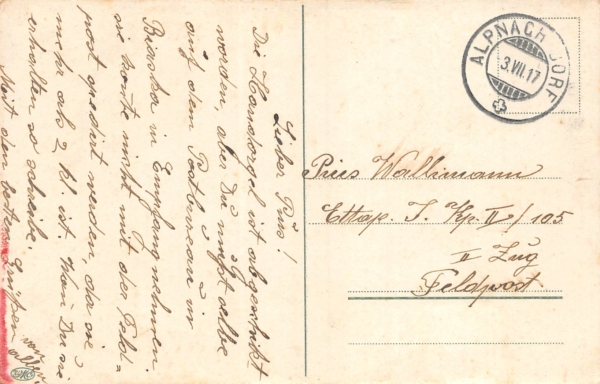 Lieber Pius!
Die Handorgel ist abgeschikt
worden, aber Du mußt selbe
auf dem Postbureau in
Biaska in Empfang nehmen.
sie konte nicht mit der Feld-
post spedirt werden, da sie
mehr als 2 kl. ist. Wen Du sie
erhalten so schreibe.
Mit den besten Grüßen
ALPNACH DORF
3.VII.17
Pius Wallimann
Ettap. I. Kp. II/105
II Zug
Feldpost